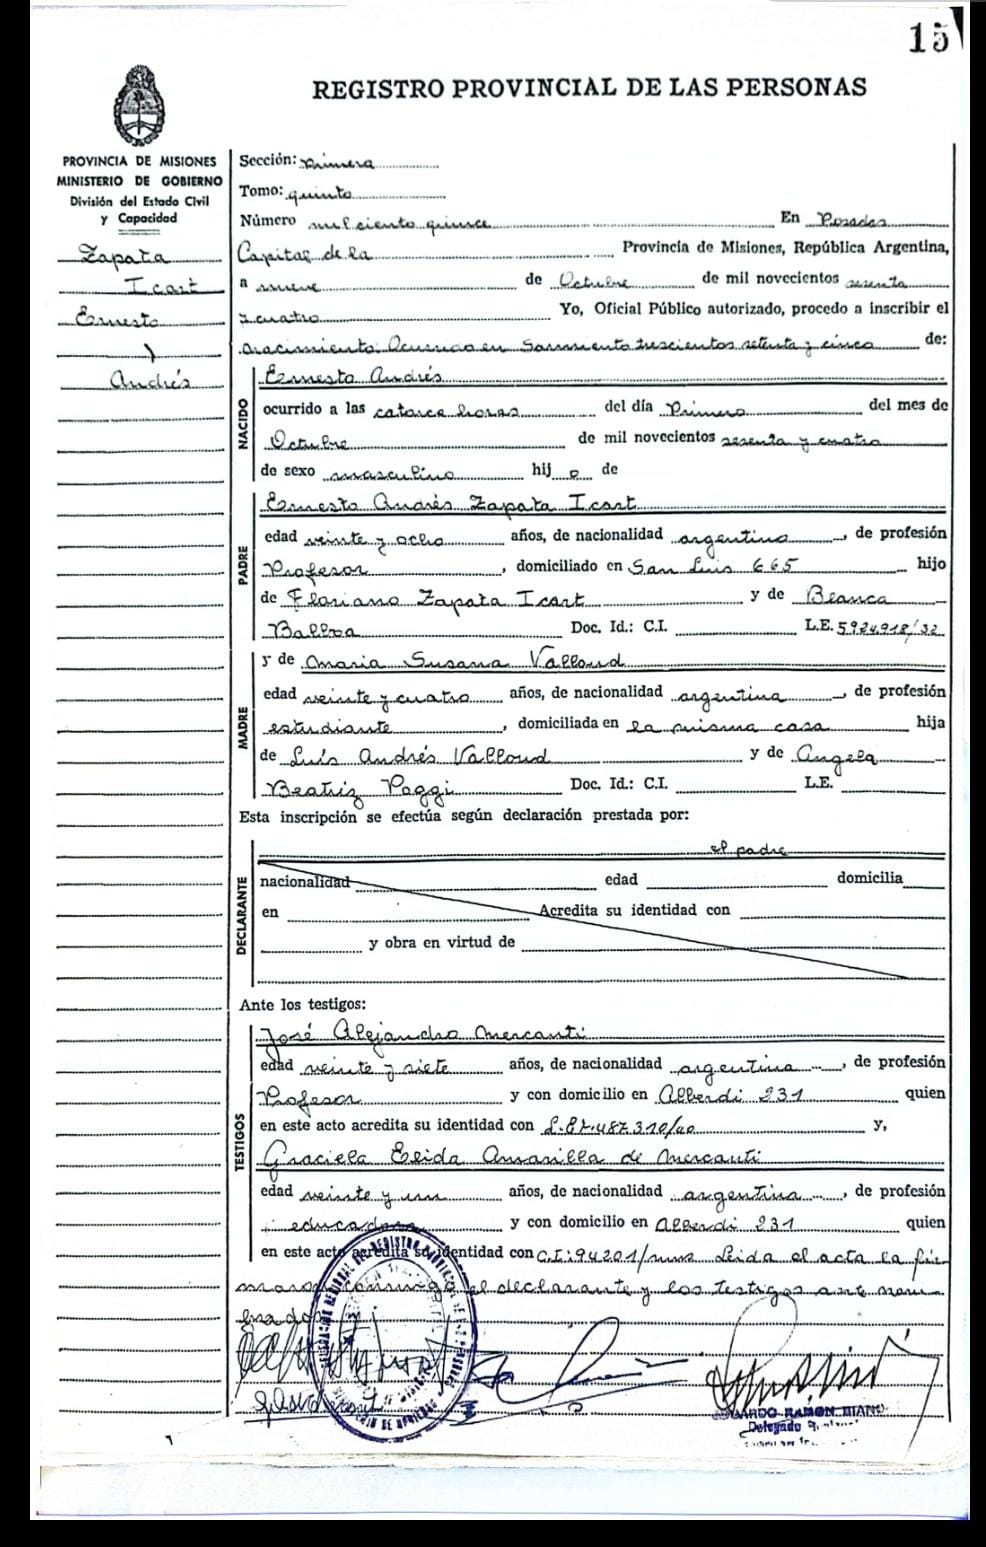 15
REGISTRO PROVINCIAL DE LAS PERSONAS
PROVINCIA DE MISIONES
MINISTERIO DE GOBIERNO
División del Estado Civil
y Capacidad
Zapata
Icart
Ernesto
Andrés
Sección: primera
Tomo: quinto
Número mil ciento quince En Posadas
Capital de la Provincia de Misiones, República Argentina,
a nueve de Octubre de mil novecientos sesenta
y cuatro Yo, Oficial Público autorizado, procedo a inscribir el
nacimiento Ocurrido en Sarmiento trescientos setenta y cinco de:
NACIDO
Ernesto Andrés
ocurrido a las catorce horas del día Primero del mes de
Octubre de mil novecientos sesenta y cuatro
de sexo masculino hij o de
PADRE
Ernesto Andrés Zapata Icart
edad veinte y ocho años, de nacionalidad argentino, de profesión
Profesor, domiciliado en San Luis 665 hijo
de Floriano Zapata Icart y de Blanca
Balboa Doc. Id.: C.I. L.E. 5924918/32
MADRE
y de Maria Susana Valloud
edad veinte y cuatro años, de nacionalidad argentina, de profesión
estudiante, domiciliada en la misma casa hija
de Luís Andrés Valloud y de Angela
Beatriz Poggi Doc. Id.: C.I. L.E.
Esta inscripción se efectúa según declaración prestada por:
DECLARANTE
el padre
nacionalidad edad domicilia
en Acredita su identidad con
y obra en virtud de
Ante los testigos:
TESTIGOS
José Alejandro Mercanti
edad veinte y siete años, de nacionalidad argentina, de profesión
Profesor y con domicilio en Alberdi 231 quien
en este acto acredita su identidad con y,
Graciela Elida Amarilla de Mercanti
edad veinte y un años, de nacionalidad argentina, de profesión
educadora y con domicilio en Alberdi 231 quien
en este acto acredita su identidad con C.I: 94201/mns Leida el acta la fir
maron conmigo el declarante y los testigos ante nom
brados
RAMON MIANO
Delegado